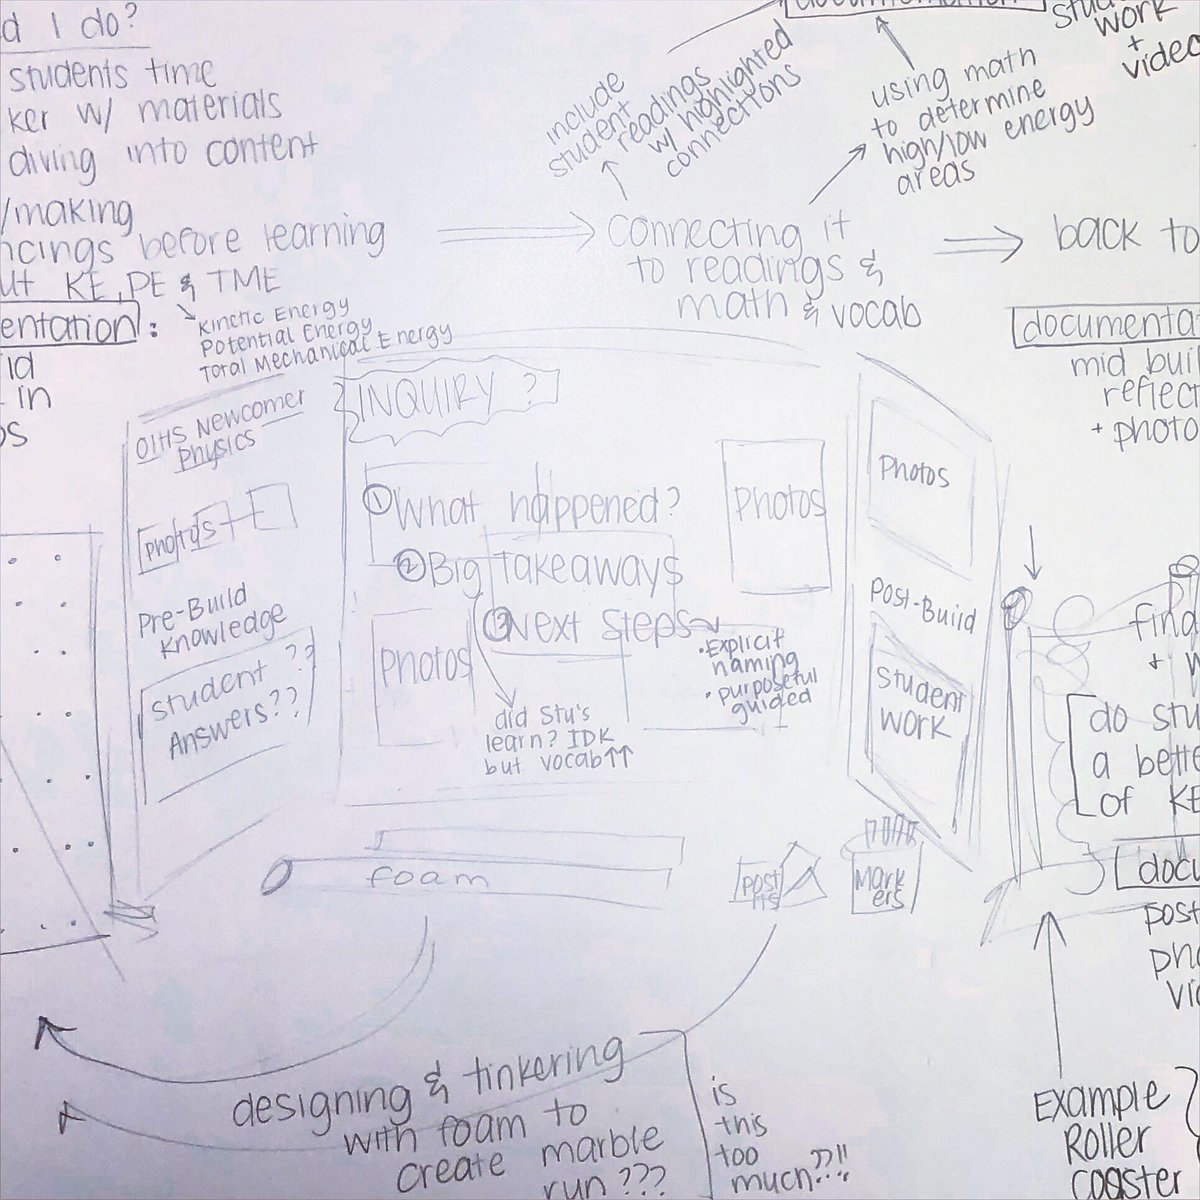 d I do?
students time
ker w/ materials
diving into content
/making
ncings before learning
ut KE, PE & TME
Kinetic Energy
Potential Energy
Total Mechanical Energy
entation:
id
in
os
include
student
readings
w/ highlighted
connections
documentation
using math
to determine
high/low energy
areas
work
+
video
connecting it
to readings &
math & vocab
back to
documentat
mid buil
reflect
+ photo
OIHS Newcomer
Physics
Photos
Pre-Build
Knowledge
Student ??
Answers??
INQUIRY ?
① What happened?
② Big takeaways
③ Next Steps
Photos
Photos
did Stu's
learn? IDK
but vocab↑↑
• Explicit
naming
• purposeful
guided
Photos
Post-Build
Student
Work
find
+ w
do stu
a bette
of KE
docu
post
pho
vi
foam
Post
its
Mark
ers
designing & tinkering
with foam to
create marble
run???
is
this
too
much??!!
Example
Roller
coaster